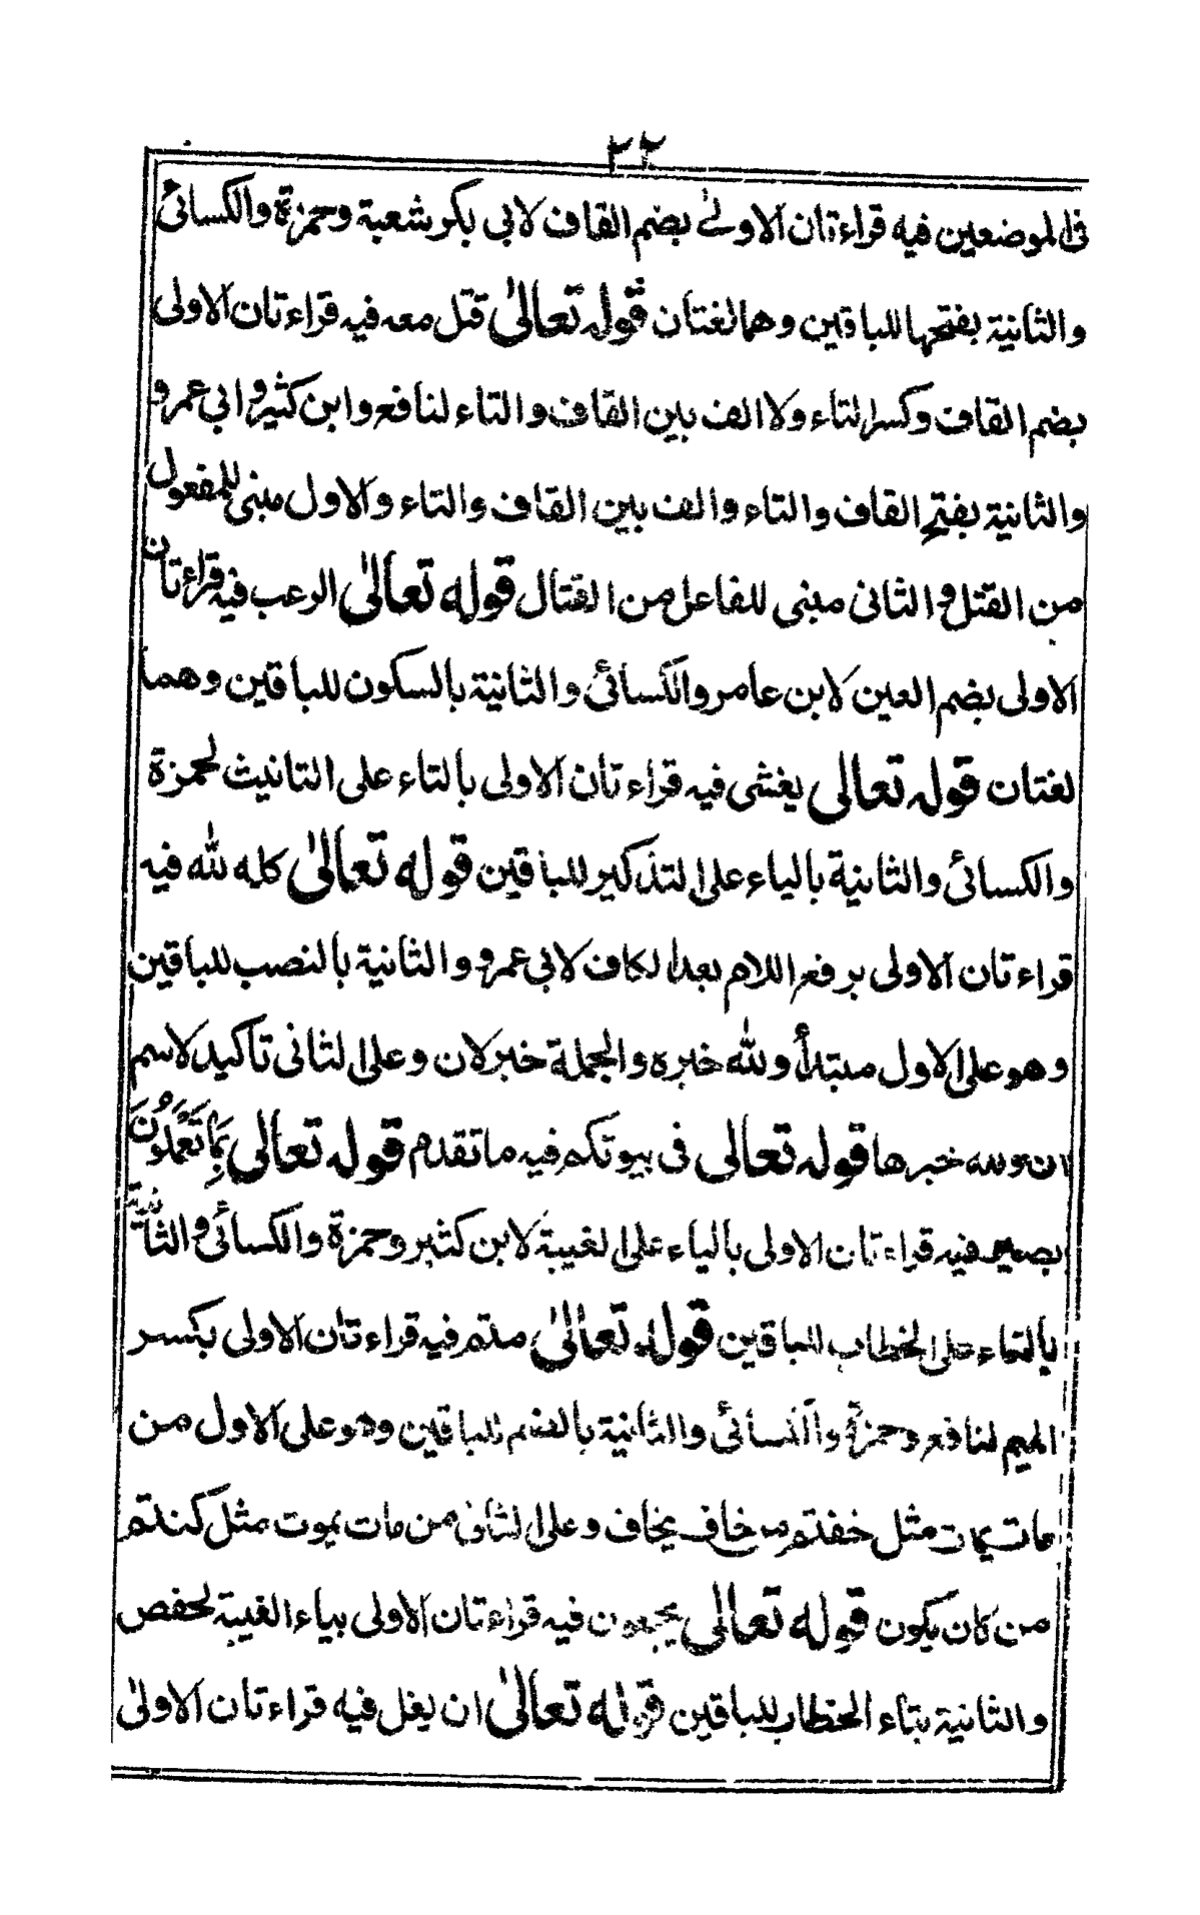 ٢٢
فى الموضعين فيه قراءتان الاولى بضم القاف لابى بكر شعبة وحمزة والكسائى
والثانية بفتحها للباقين وهما لغتان قوله تعالىٰ قتل معه فيه قراءتان الاولى
بضم القاف وكسر التاء ولا الف بين القاف والتاء لنافع وابن كثير وابى عمرو
والثانية بفتح القاف والتاء والف بين القاف والتاء والاول مبنى للمفعول
من القتل والثانى مبنى للفاعل من القتال قوله تعالىٰ الرعب فيه قراءتان
الاولى بضم العين لابن عامر والكسائى والثانية بالسكون للباقين وهما
لغتان قوله تعالى يغشى فيه قراءتان الاولى بالتاء على التانيث لحمزة
والكسائى والثانية بالياء على التذكير للباقين قوله تعالىٰ كله لله فيه
قراءتان الاولى برفع اللام بعد الكاف لابى عمرو والثانية بالنصب للباقين
وهو على الاول مبتدأ ولله خبره والجملة خبر لان وعلى الثانى تأكيد لاسم
ان ولله خبرها قوله تعالى فى بيوتكم فيه ما تقدم قوله تعالى بِمَا تَعْمَلُوْنَ
بصير فيه قراءتان الاولى بالياء على الغيبة لابن كثير وحمزة والكسائى والثانية
بالتاء على الخطاب للباقين قوله تعالىٰ متم فيه قراءتان الاولى بكسر
الميم لنافع وحمزة والكسائى والثانية بالضم للباقين وهو على الاول من
مات يمات مثل خفتم من خاف يخاف وعلى الثانى من مات يموت مثل كنتم
من كان يكون قوله تعالى يجمعون فيه قراءتان الاولى بياء الغيبة لحفص
والثانية بتاء الخطاب للباقين قوله تعالىٰ ان يغل فيه قراءتان الاولىٰ